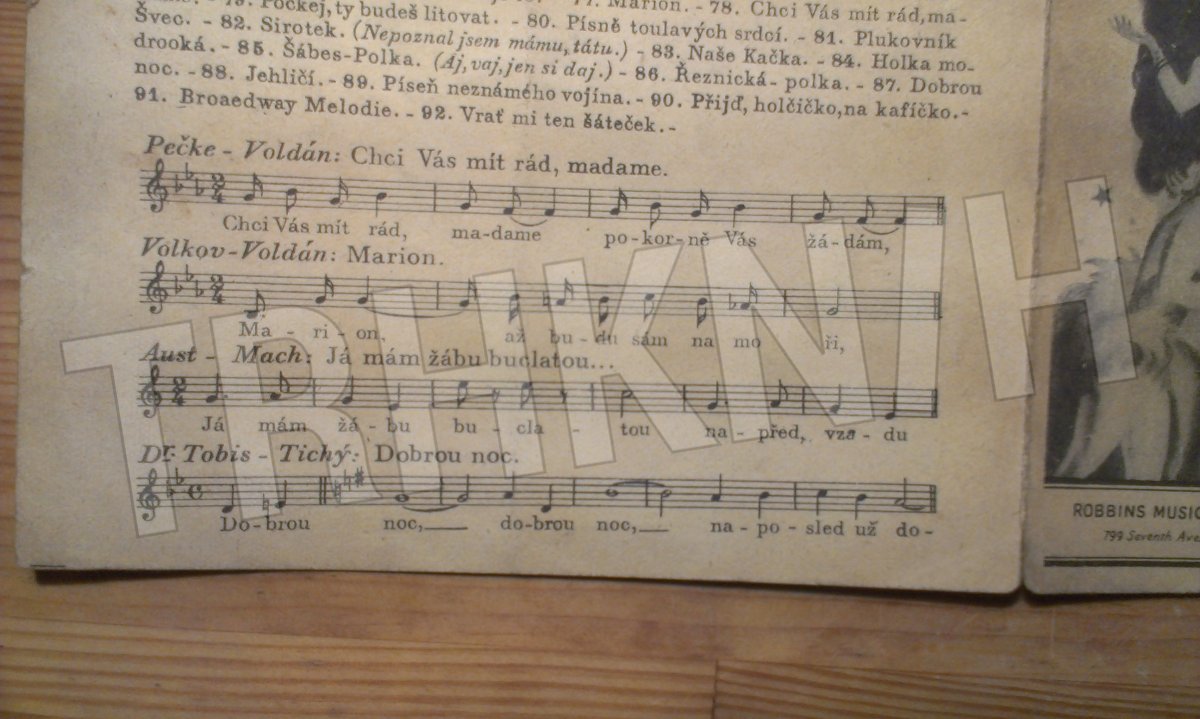 Počkej, ty budeš litovat. - 77. Marion. - 78. Chci Vás mít rád, ma-
Švec. - 82. Sirotek. (Nepoznal jsem mámu, tátu.) - 80. Písně toulavých srdcí. - 81. Plukovník
drooká. - 85. Šábes-Polka. (Aj, vaj, jen si daj.) - 83. Naše Kačka. - 84. Holka mo-
noc. - 88. Jehličí. - 89. Píseň neznámého vojína. - 86. Řeznická-polka. - 87. Dobrou
91. Broaedway Melodie. - 92. Vrať mi ten šáteček. - 90. Přijď, holčičko, na kafíčko. -
Pečke - Voldán: Chci Vás mít rád, madame.
Chci Vás mít rád, ma-dame po-kor-ně Vás žá-dám,
Volkov-Voldán: Marion.
Ma - ri - on, až bu - du sám na mo ři,
Aust - Mach: Já mám žábu buclatou...
Já mám žá - bu bu - cla - tou na - před, vza - du
Dr. Tobis - Tichý: Dobrou noc.
Do-brou noc, dobrou noc, na - po - sled už do -
ROBBINS MUSIC
799 Seventh Ave
TRHKNIH